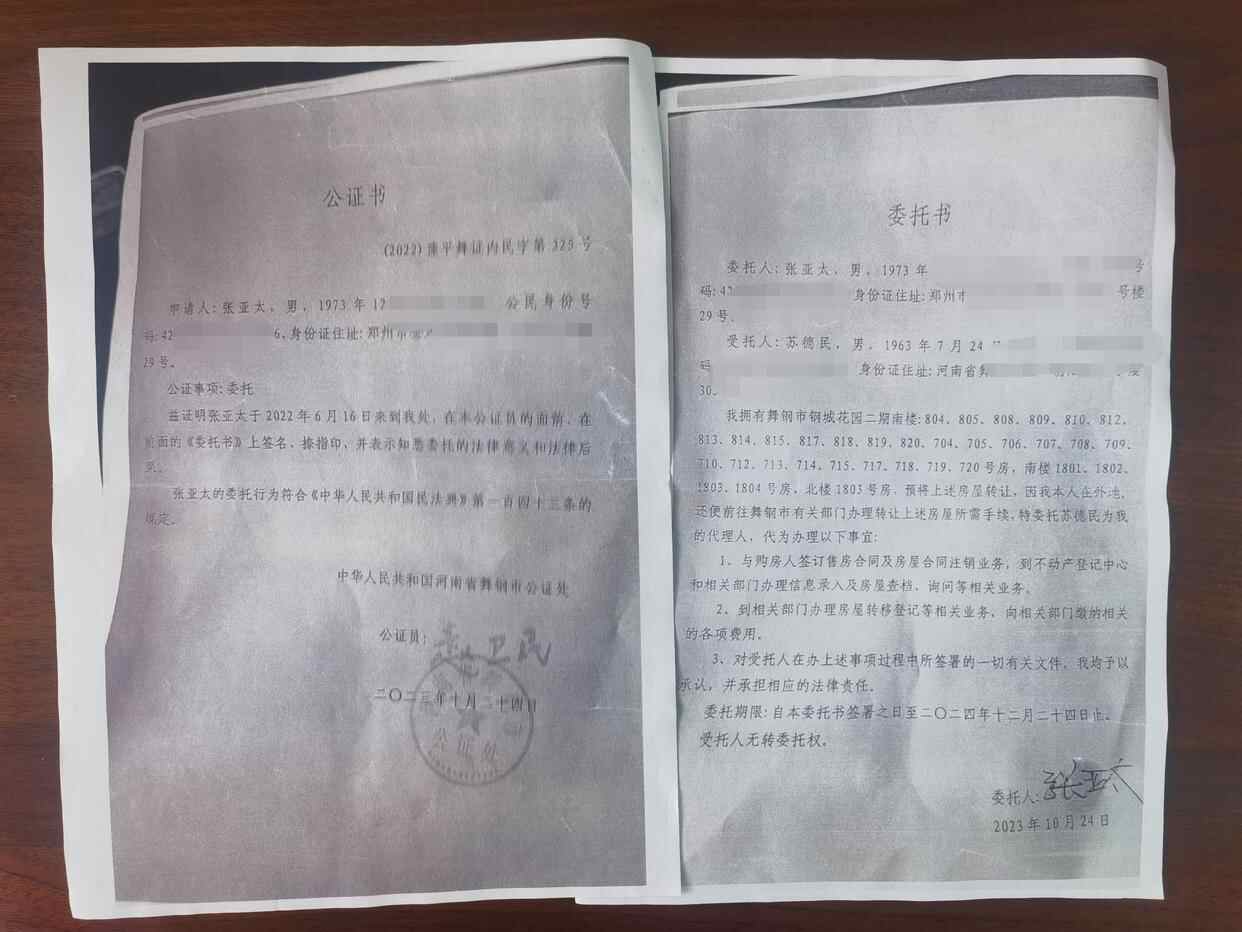 公证书
(2022)豫平舞证内民字第325号
申请人:张亚太,男,1973年12
公民身份号
码:42
6,身份证住址:郑州市
29号。
公证事项:委托
兹证明张亚太于2022年6月16日来到我处,在本公证员的面前,在
前面的《委托书》上签名、捺指印,并表示知悉委托的法律意义和法律后
果。
张亚太的委托行为符合《中华人民共和国民法典》第一百四十三条的
规定。
中华人民共和国河南省舞钢市公证处
公证员:
卫民
二〇二三年十月二十四日
公证处
委托书
委托人:张亚太,男,1973年
号
码:42
身份证住址:郑州市
号楼
29号。
受托人:苏德民,男,1963年7月24
码
身份证住址:河南省舞
30。
我拥有舞钢市钢城花园二期南楼:804、805、808、809、810、812、
813、814、815、817、818、819、820、704、705、706、707、708、709、
710、712、713、714、715、717、718、719、720号房,南楼1801、1802、
1803、1804号房,北楼1803号房。预将上述房屋转让,因我本人在外地,
还便前往舞钢市有关部门办理转让上述房屋所需手续,特委托苏德民为我
的代理人,代为办理以下事宜:
1、与购房人签订售房合同及房屋合同注销业务,到不动产登记中心
和相关部门办理信息录入及房屋查档、询问等相关业务。
2、到相关部门办理房屋转移登记等相关业务、向相关部门缴纳相关
的各项费用。
3、对受托人在办上述事项过程中所签署的一切有关文件,我均予以
承认,并承担相应的法律责任。
委托期限:自本委托书签署之日至二〇二四年十二月二十四日止。
受托人无转委托权。
委托人:张亚太
2023年10月24日